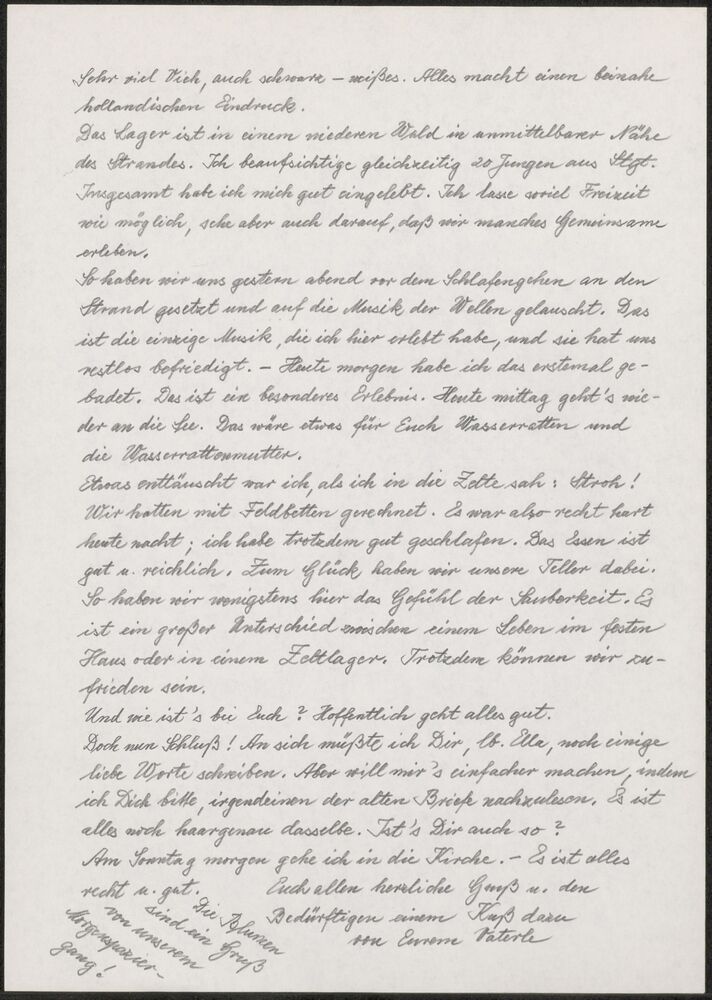 Sehr viel Vieh, auch schwarz – weißes. Alles macht einen beinahe
hollandischen Eindruck.
Das Lager ist in einem niederen Wald in unmittelbarer Nähe
des Strandes. Ich beaufsichtige gleichzeitig 20 Jungen aus Stgt.
Insgesamt habe ich mich gut eingelebt. Ich lasse soviel Freizeit
wie möglich, sehe aber auch darauf, daß wir manches Gemeinsame
erleben.
So haben wir uns gestern abend vor dem Schlafengehen an den
Strand gesetzt und auf die Musik der Wellen gelauscht. Das
ist die einzige Musik, die ich hier erlebt habe, und sie hat uns
restlos befriedigt. – Heute morgen habe ich das erstemal ge-
badet. Das ist ein besonderes Erlebnis. Heute mittag geht's wie-
der an die See. Das wäre etwas für Euch Wasserratten und
die Wasserrattenmutter.
Etwas enttäuscht war ich, als ich in die Zelte sah: Stroh!
Wir hatten mit Feldbetten gerechnet. Es war also recht hart
heute nacht; ich habe trotzdem gut geschlafen. Das Essen ist
gut u. reichlich. Zum Glück haben wir unsere Teller dabei.
So haben wir wenigstens hier das Gefühl der Sauberkeit. Es
ist ein großer Unterschied zwischen einem Leben im festen
Haus oder in einem Zeltlager. Trotzdem können wir zu-
frieden sein.
Und wie ist's bei Euch? Hoffentlich geht alles gut.
Doch nun Schluß! An sich müßte ich Dir, lb. Ella, noch einige
liebe Worte schreiben. Aber will mir's einfacher machen, indem
ich Dich bitte, irgendeinen der alten Briefe nachzulesen. Es ist
alles noch haargenau dasselbe. Ist's Dir auch so?
Am Sonntag morgen gehe ich in die Kirche. – Es ist alles
recht u. gut. Euch allen herzliche Grüß u. den
Bedürftigen einem Kuß dazu
von Eurem Vaterle
Die Blumen
sind ein Gruß
von unserem
Morgenspazier-
gang!